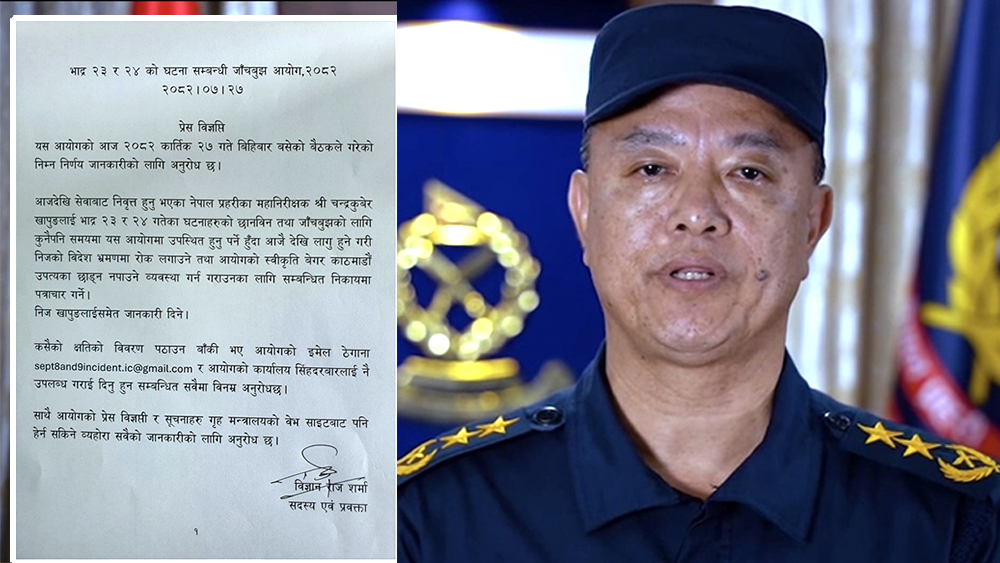 भाद्र २३ र २४ को घटना सम्बन्धी जाँचबुझ आयोग,२०८२
२०८२।०७।२७
प्रेस विज्ञप्ति
यस आयोगको आज २०८२ कार्तिक २७ गते बिहिवार बसेको बैठकले गरेको
निम्न निर्णय जानकारीको लागि अनुरोध छ।
आजदेखि सेवाबाट निवृत्त हुनु भएका नेपाल प्रहरीका महानिरीक्षक श्री चन्द्रकुबेर
खापुङलाई भाद्र २३ र २४ गतेका घटनाहरुको छानविन तथा जाँचबुझको लागि
कुनैपनि समयमा यस आयोगमा उपस्थित हुनु पर्ने हुँदा आजै देखि लागु हुने गरी
निजको विदेश भ्रमणमा रोक लगाउने तथा आयोगको स्वीकृति बेगर काठमाडौँ
उपत्यका छाड्न नपाउने व्यवस्था गर्न गराउनका लागि सम्बन्धित निकायमा
पत्राचार गर्ने।
निज खापुङलाईसमेत जानकारी दिने।
कसैको क्षतिको विवरण पठाउन बाँकी भए आयोगको इमेल ठेगाना
sept8and9incident.ic@gmail.com र आयोगको कार्यालय सिंहदरबारलाई नै
उपलब्ध गराई दिनु हुन सम्बन्धित सबैमा विनम्र अनुरोधछ।
साथै आयोगको प्रेस विज्ञप्ती र सूचनाहरु गृह मन्त्रालयको वेभ साइटबाट पनि
हेर्न सकिने व्यहोरा सबैको जानकारीको लागि अनुरोध छ।
विज्ञान राज शर्मा
सदस्य एवं प्रवक्ता
१